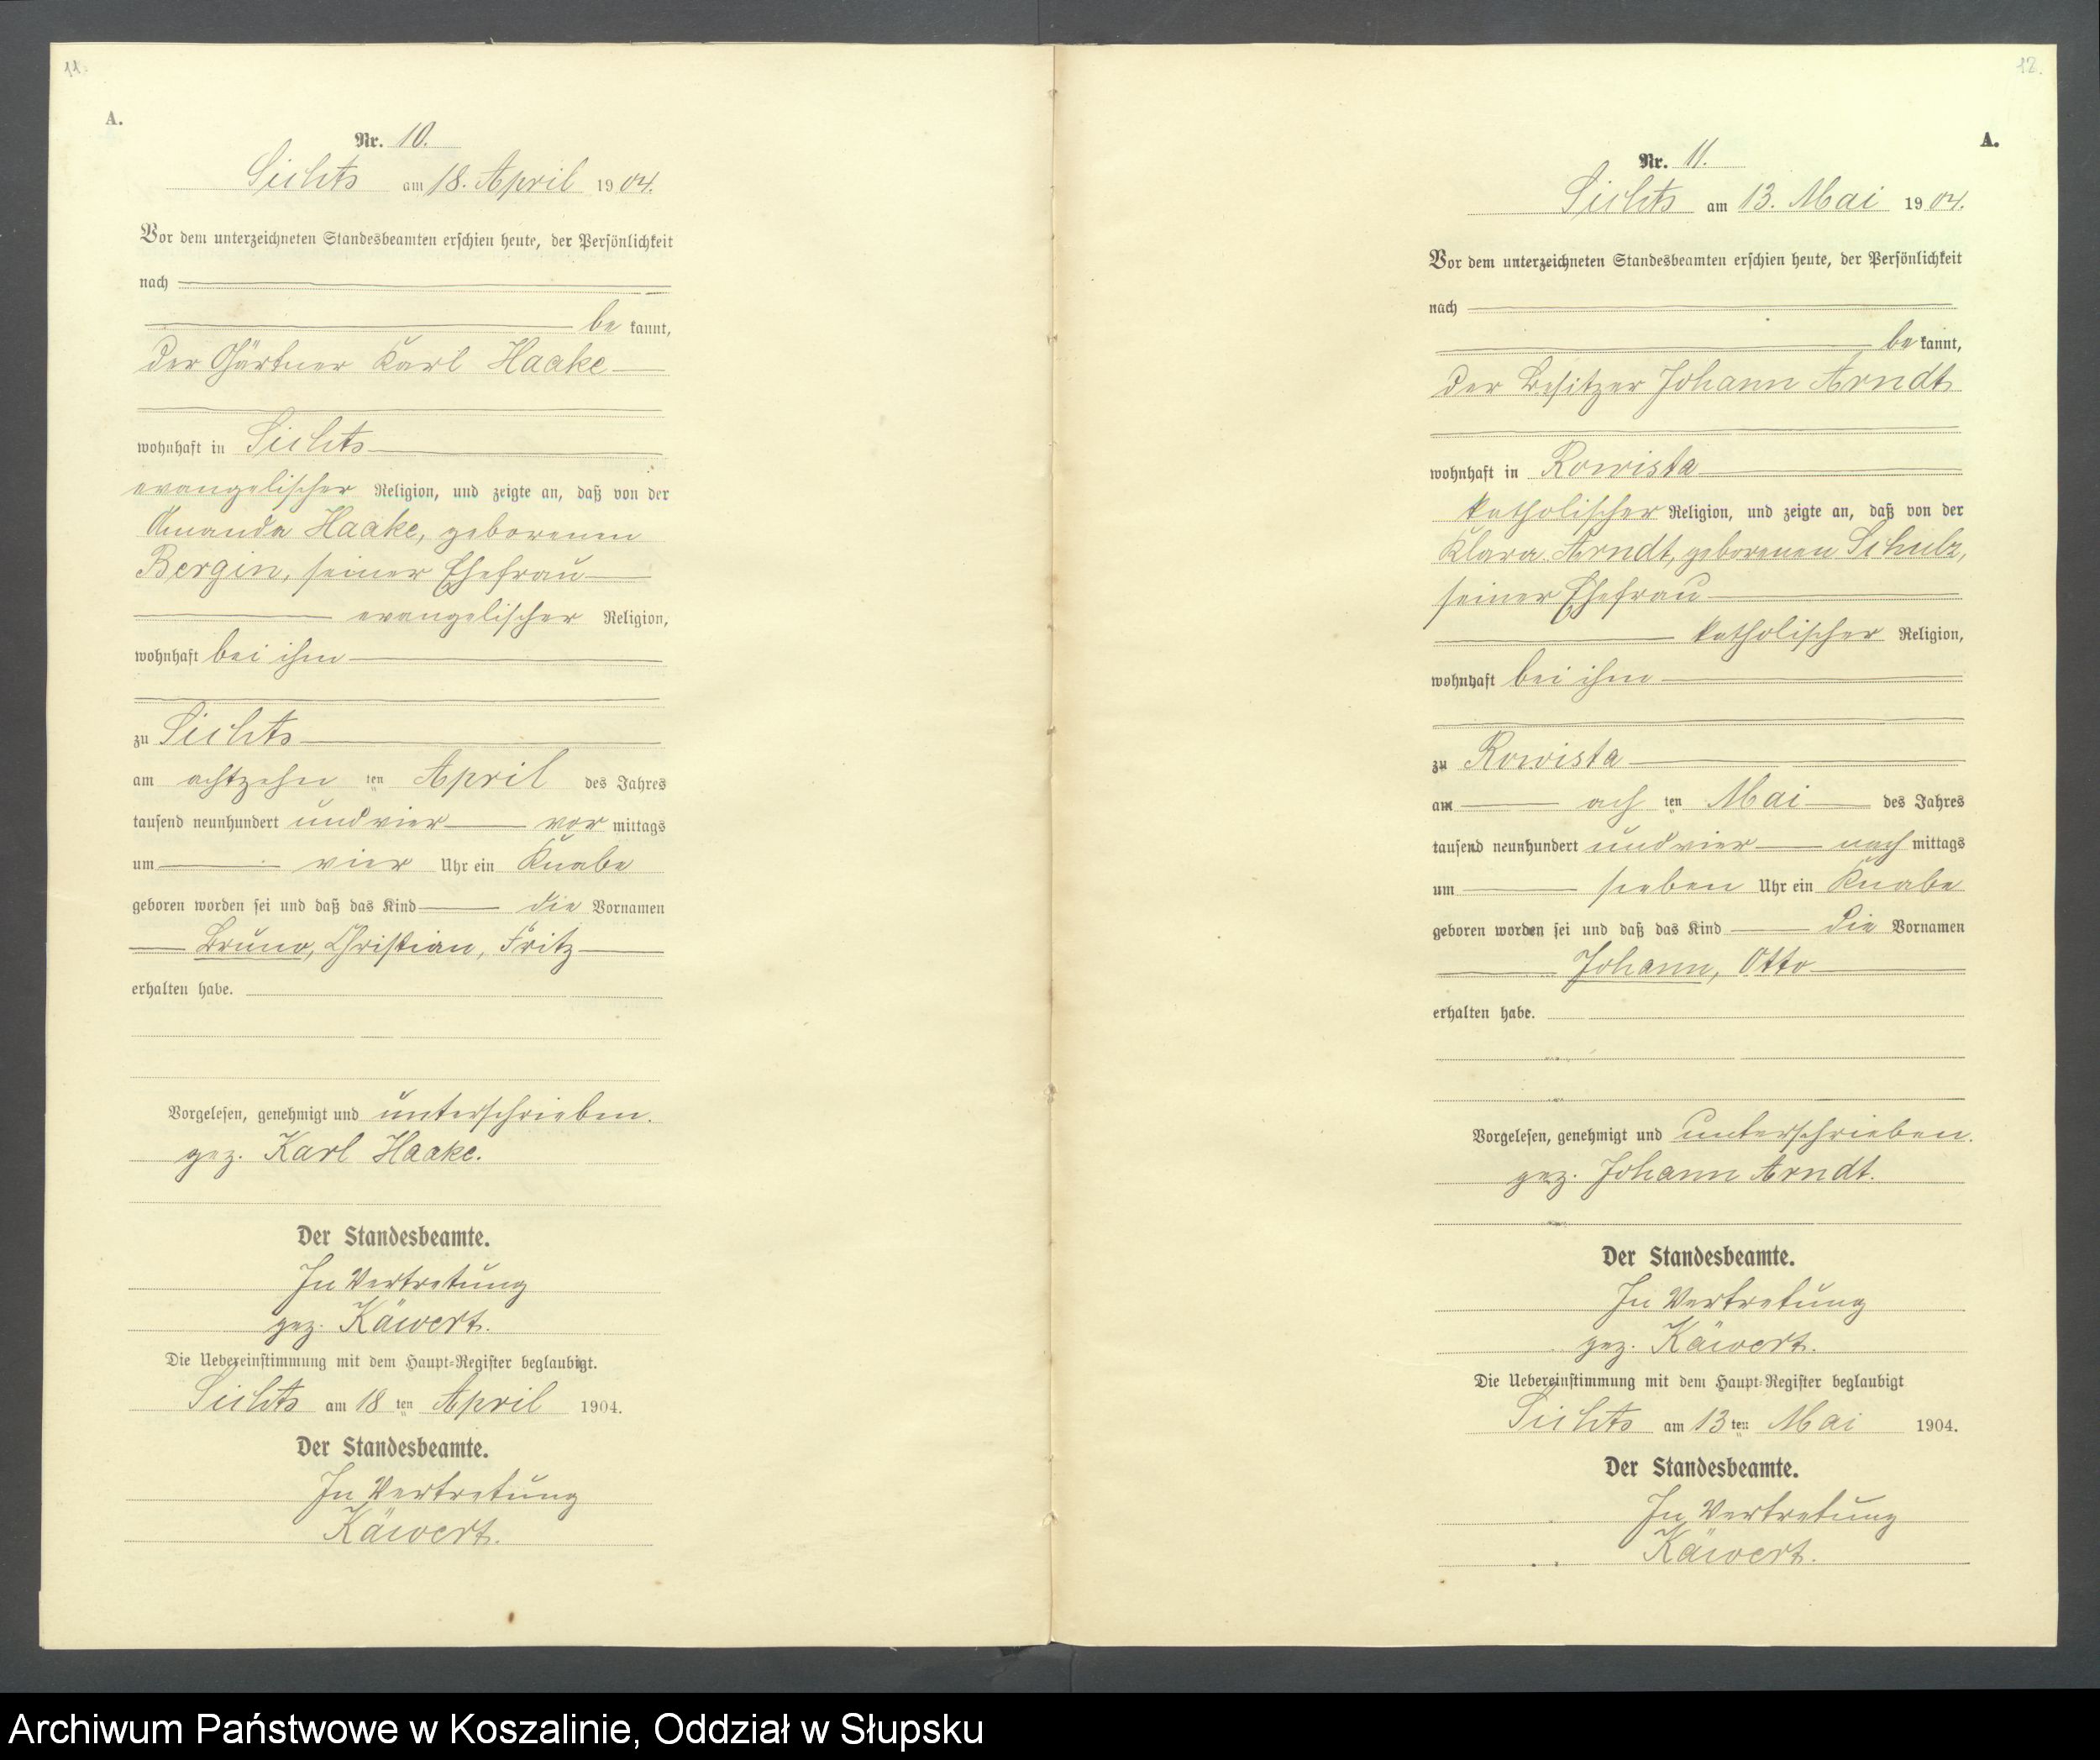 11.
A.
Nr. 10.
Sichts am 18. April 1904.
Vor dem unterzeichneten Standesbeamten erschien heute, der Persönlichkeit
nach
be kannt,
der Gärtner Karl Haake
wohnhaft in Sichts
evangelischer Religion, und zeigte an, daß von der
Amanda Haake, geborenen
Bergin, seiner Ehefrau
evangelischer Religion,
wohnhaft bei ihm
zu Sichts
am achtzehn ten April des Jahres
tausend neunhundert und vier vor mittags
um vier Uhr ein Knabe
geboren worden sei und daß das Kind die Vornamen
Bruno, Christian, Fritz
erhalten habe.
Vorgelesen, genehmigt und unterschrieben.
gez. Karl Haake.
Der Standesbeamte.
In Vertretung
gez. Käwert.
Die Uebereinstimmung mit dem Haupt-Register beglaubigt.
Sichts am 18 ten April 1904.
Der Standesbeamte.
In Vertretung
Käwert.
12.
A.
Nr. 11.
Sichts am 13. Mai 1904.
Vor dem unterzeichneten Standesbeamten erschien heute, der Persönlichkeit
nach
be kannt,
der Besitzer Johann Arndt
wohnhaft in Rowista
katholischer Religion, und zeigte an, daß von der
Klara Arndt, geborenen Schulz,
seiner Ehefrau
katholischer Religion,
wohnhaft bei ihm
zu Rowista
am ach ten Mai des Jahres
tausend neunhundert und vier nach mittags
um sieben Uhr ein Knabe
geboren worden sei und daß das Kind die Vornamen
Johann, Otto
erhalten habe.
Vorgelesen, genehmigt und unterschrieben.
gez. Johann Arndt.
Der Standesbeamte.
In Vertretung
gez. Käwert.
Die Uebereinstimmung mit dem Haupt-Register beglaubigt
Sichts am 13 ten Mai 1904.
Der Standesbeamte.
In Vertretung
Käwert.
Archiwum Państwowe w Koszalinie, Oddział w Słupsku